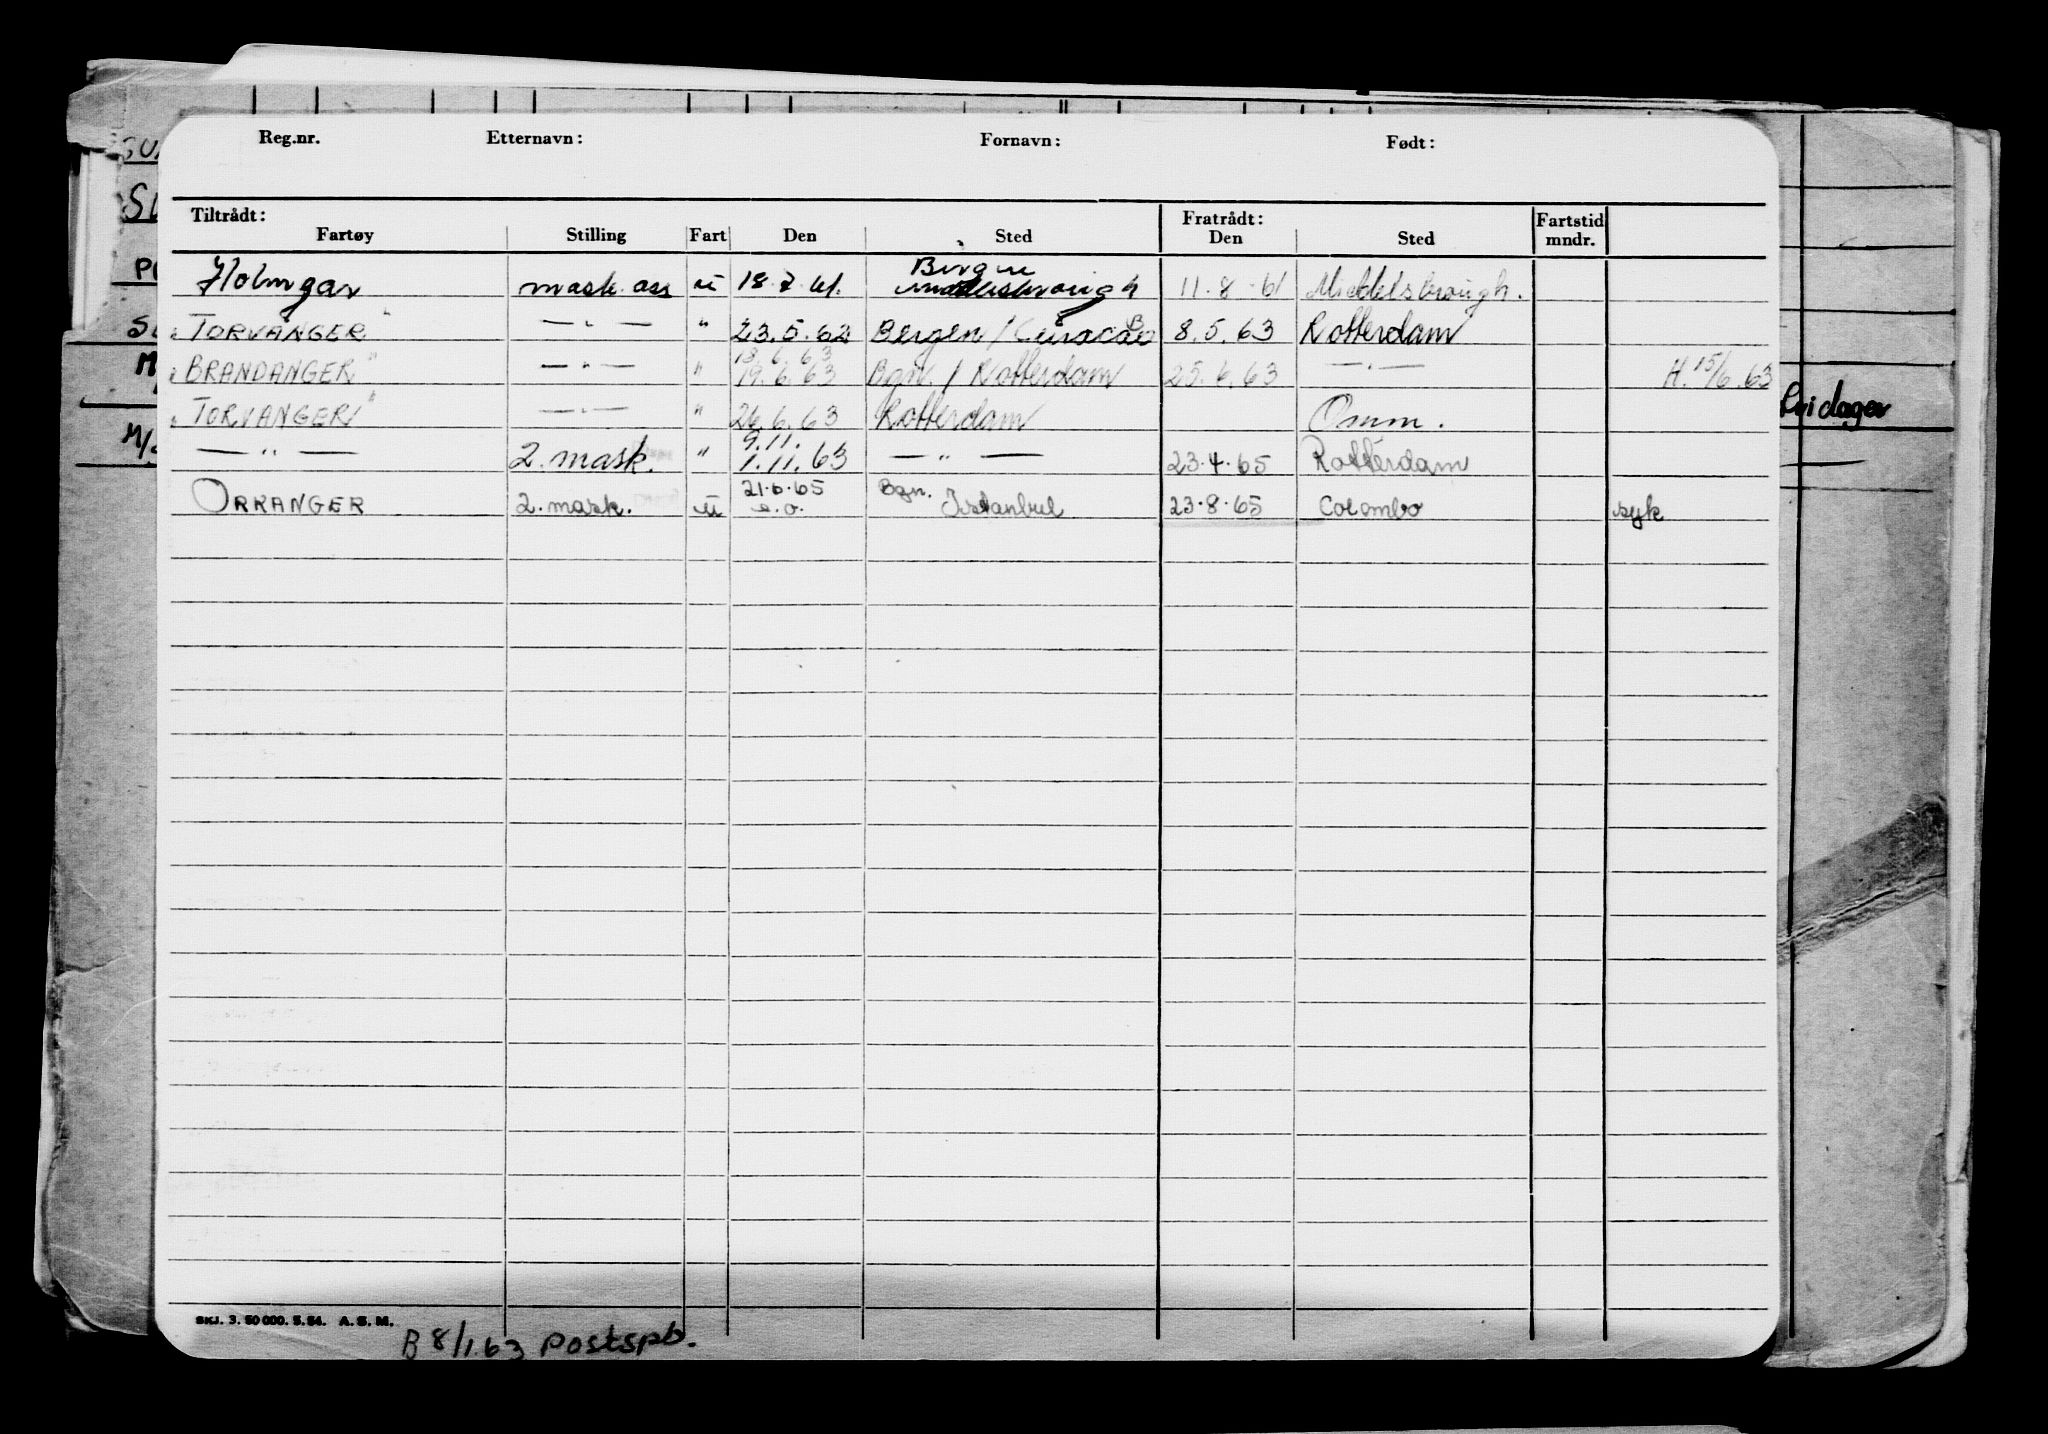 Reg.nr. Etternavn: Fornavn: Født:
Tiltrådt: Fratrådt: Fartstid
Fartøy Stilling Fart Den Sted Den Sted mndr.
Bergen
Holmgar mask. ass u 18.7.61. Middelsbrough 11.8.61 Middelsbrough.
" TORVANGER " — " — " 23.5.62 Bergen / Curacao B 8.5.63 Rotterdam
18.6.63
" BRANDANGER " — " — " 19.6.63 Bgn. / Rotterdam 25.6.63 — " — H. 15/6.63
" TORVANGER " — " — " 26.6.63 Rotterdam Omm.
9.11.
— " — 2. mask. " 1.11.63 — " — 23.4.65 Rotterdam
21.6.65 Bgn.
ORKANGER 2. mask. u s.o. Istanbul 23.8.65 Colombo syk
SKJ. 3. 50 000. 5. 54. A. S. M.
B 8/1.63 Postspb.